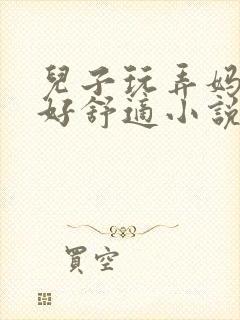 兒子玩弄妈
好舒適小說
買空